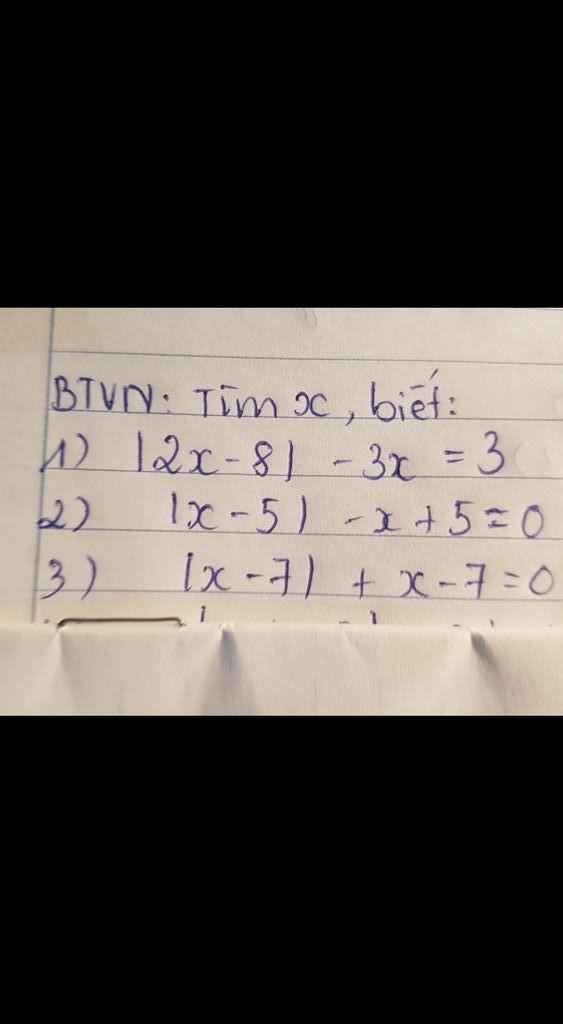 BTVN: Tìm x, biết:
1) |2x - 8| - 3x = 3
2) |x - 5| - x + 5 = 0
3) |x - 7| + x - 7 = 0